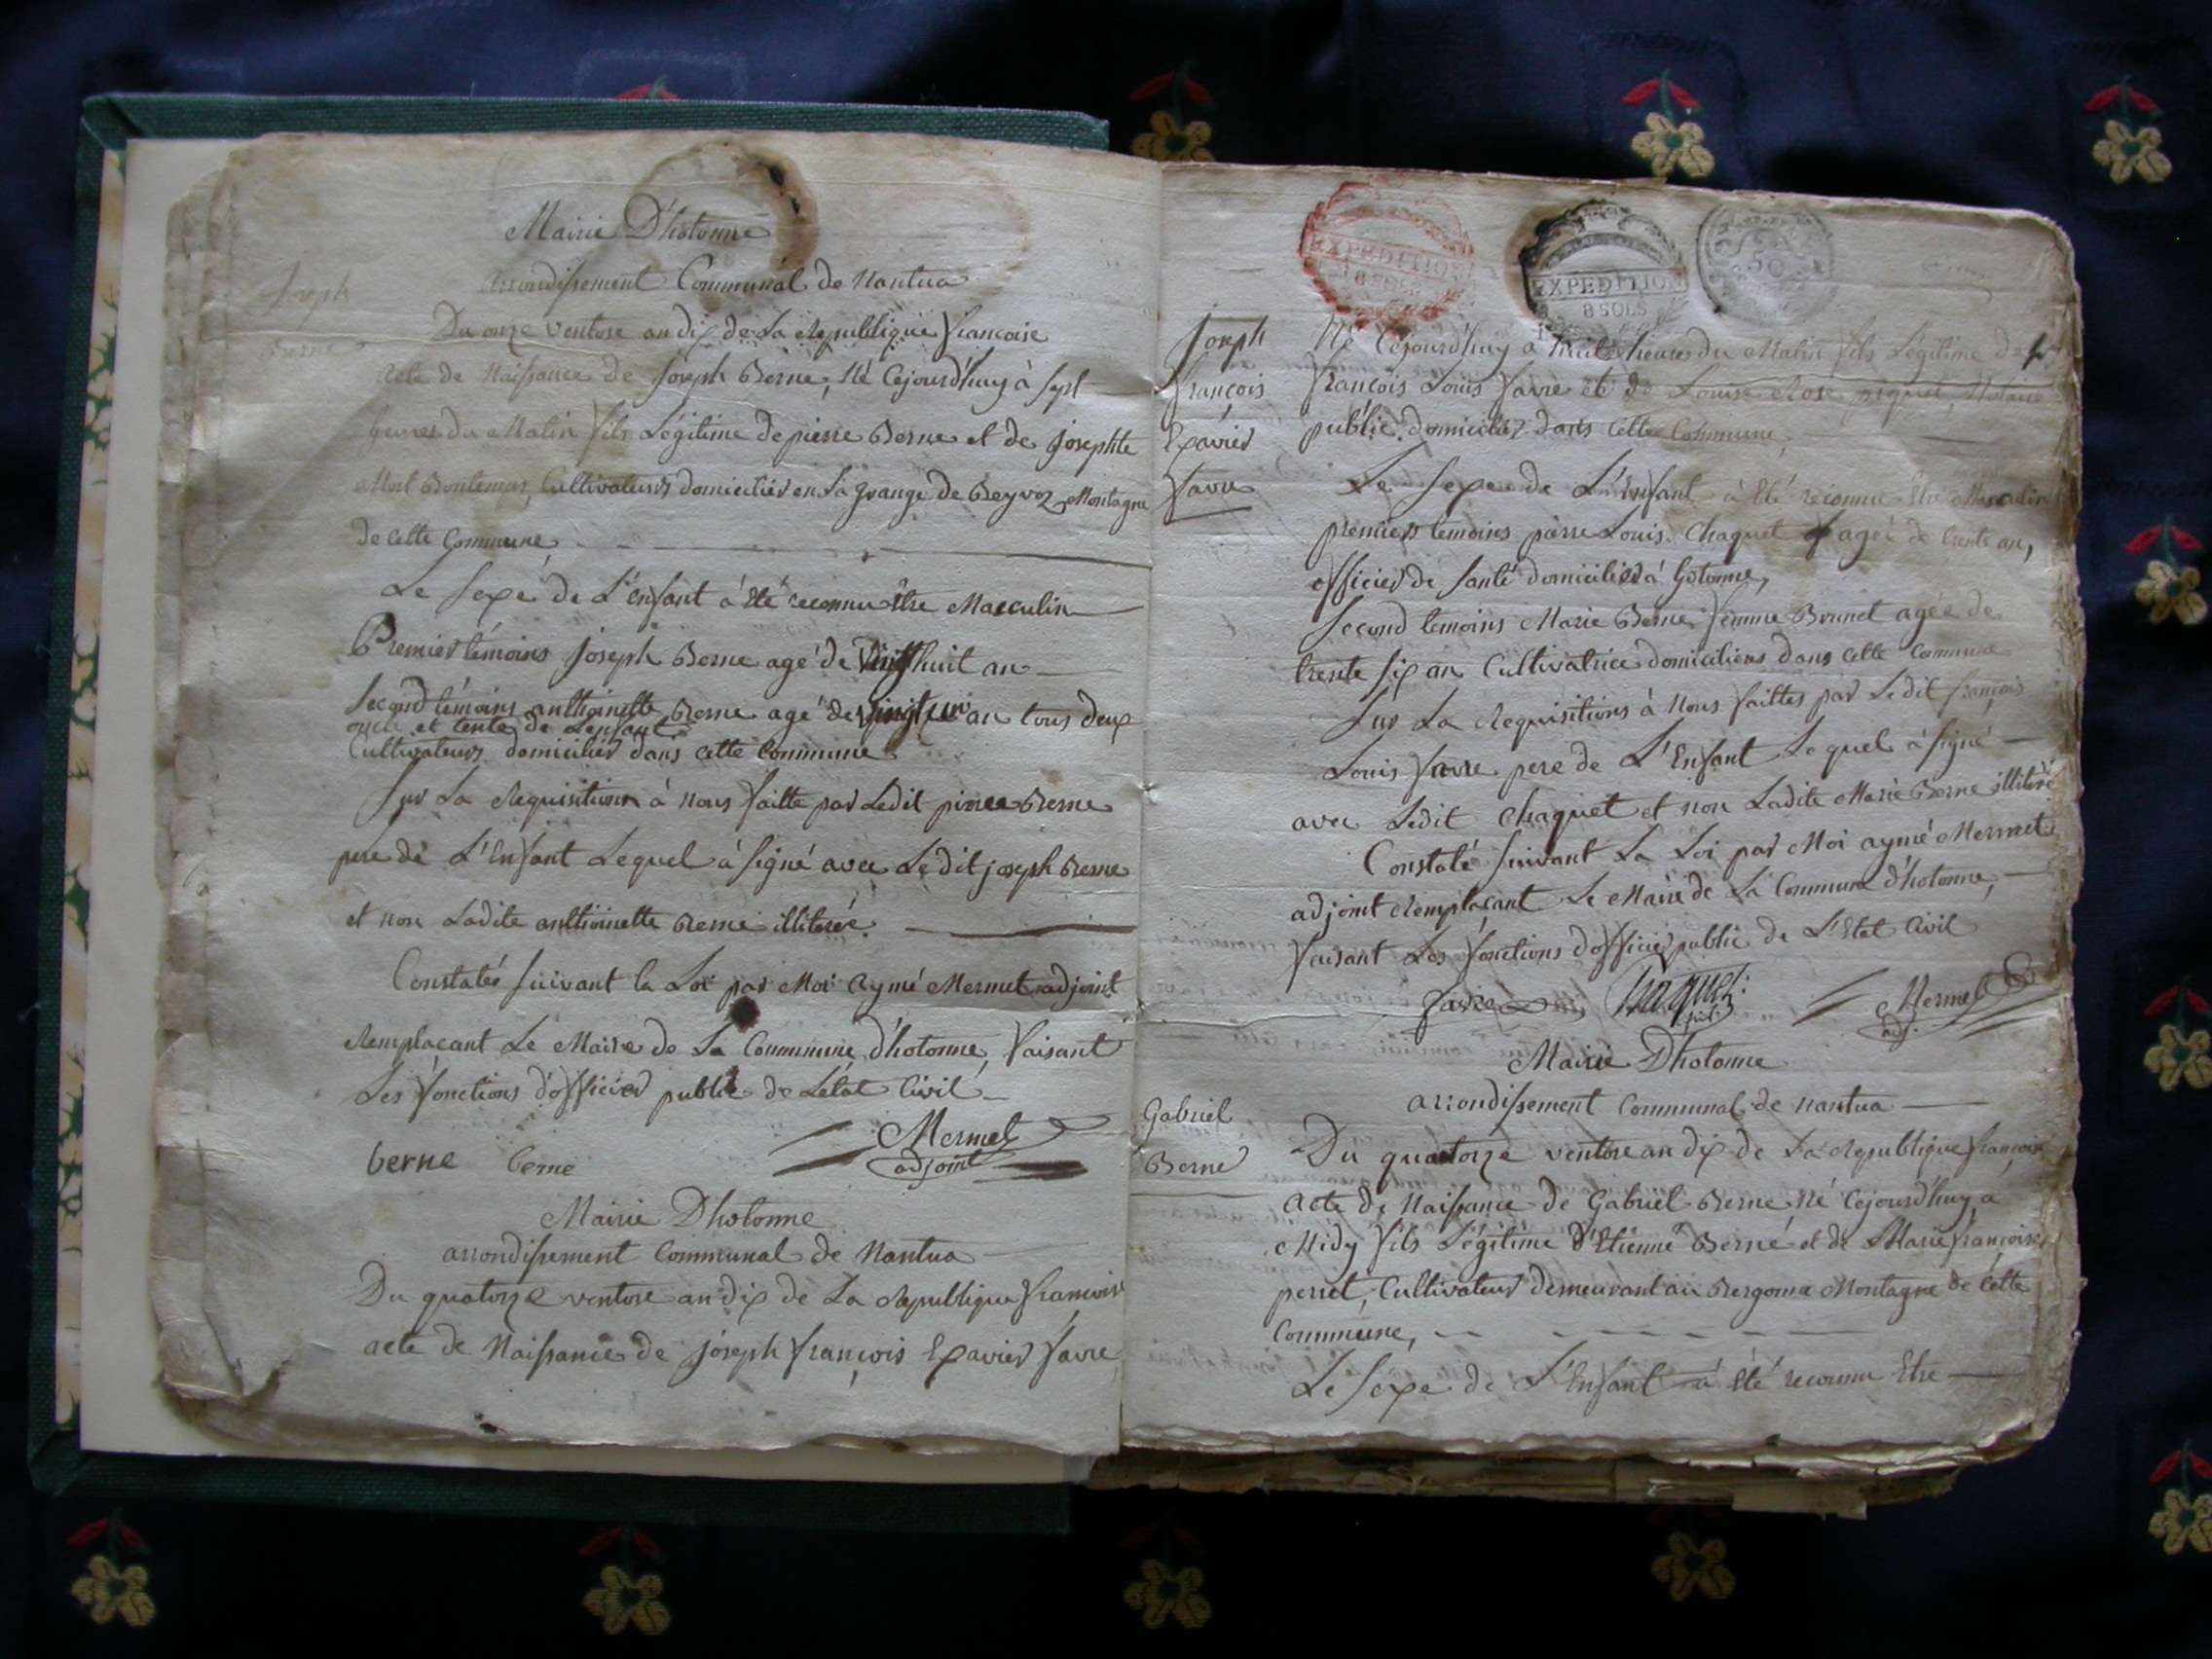 Joseph
Berne
Mairie D'hotonne
arrondissement Communal de Nantua
Du onze ventose an dix de La Republique francaise
Acte de Naissance de Joseph Berne, Né Cejourd'huy à Sept
heures du Matin fils Légitime de pierre Berne et de Josephte
Cultivateurs domiciliés en La grange de Montagne
de Cette Commune
Le Sexe de L'enfant à été reconnu être Masculin
Premier témoins Joseph Berne agé de huit an
Second témoins anthoinette Berne agé de an tous deux
oncle et tente de Lenfant
Cultivateurs domiciliés dans cette Commune
Sur La Requisition à nous faitte par Ledit pierre Berne
pere de L'Enfant Lequel à Signé avec Le dit joseph Berne
et non Ladite anthoinette Berne illiterée.
Constatés Suivant la Loi par Moi Aymé Mermet adjoint
Remplacant Le Maire de La Commune d'hotonne, faisant
Les fonctions d'officier public de Létat Civil
berne berne Mermet
adjoint
Mairie D'hotonne
arrondissement Communal de Nantua
Du quatorze ventose an dix de La Republique francoise
acte de Naissance de Joseph françois Exavier favre
EXPEDITION
8 SOLS
EXPEDITION
8 SOLS
50
Joseph
françois
Exavier
favre
Né Cejourd'huy à huit heures du Matin fils Légitime de
françois Louis favre et de Louise Rose Notaire
public domiciliés dans Cette Commune
Le Sexe de L'enfant à été reconnu être Masculin
premiers témoins pierre Louis Chaquet agé de trente an,
officier de Santé domicilié à hotonne,
Second témoins Marie Berne femme Brunet agée de
trente Six an Cultivatrice domiciliées dans Cette Commune
Sur La Requisitions à Nous faittes par Ledit françois
Louis favre pere de L'Enfant Lequel à Signé
avec Ledit Chaquet et non Ladite Marie Berne illiterée
Constaté Suivant La Loi par Moi aymé Mermet
adjoint Remplacant Le Maire de La Commune d'hotonne,
faisant Les fonctions d'officier public de L'Etat Civil
favre Chaquet Mermet
adj.
Mairie D'hotonne
arrondissement Communal de Nantua
Gabriel
Berne
Du quatorze ventose an dix de La Republique françoise
Acte de Naissance de Gabriel Berne Né Cejourd'huy à
Midy fils Légitime d'Etienne Berne et de Marie françoise
perret, Cultivateur demeurant au Bergoma Montagne de Cette
Commune,
Le Sexe de L'Enfant à été reconnu Etre